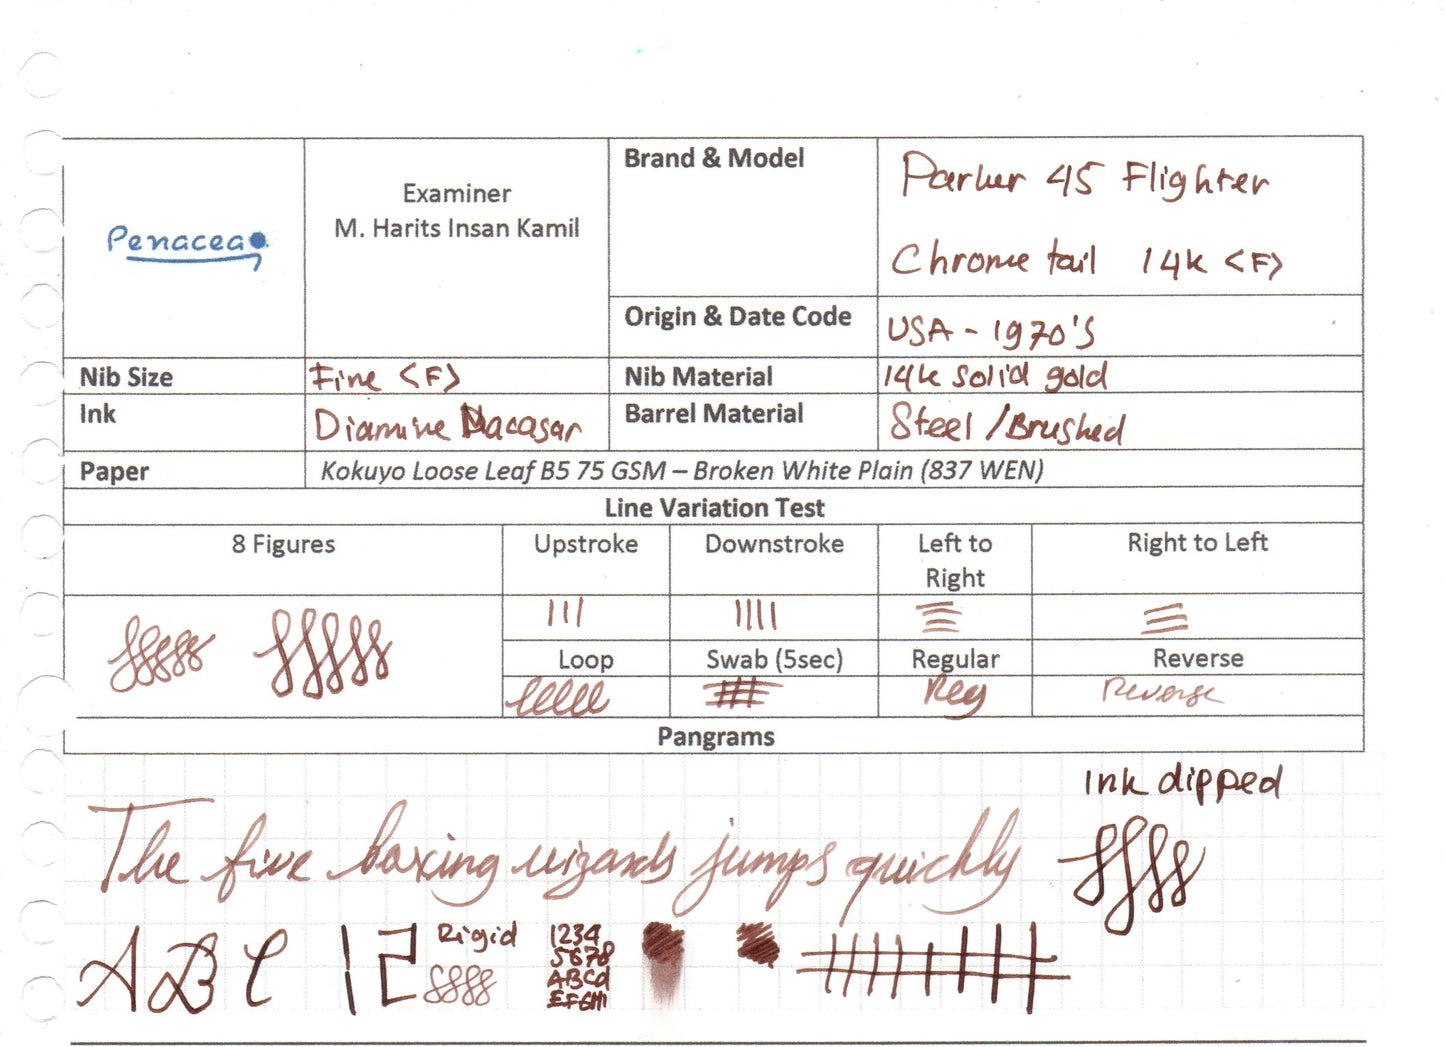 Penacea
Examiner
M. Harits Insan Kamil
Brand & Model
Parker 45 Flighter
Chrome tail 14k <F>
Origin & Date Code
USA - 1970's
Nib Size
Fine <F>
Nib Material
14k solid gold
Ink
Diamine Macasar
Barrel Material
Steel / Brushed
Paper
Kokuyo Loose Leaf B5 75 GSM – Broken White Plain (837 WEN)
Line Variation Test
8 Figures
Upstroke
Downstroke
Left to
Right
Right to Left
Loop
Swab (5sec)
Regular
Reverse
Reg
Reverse
Pangrams
Ink dipped
The five boxing wizards jumps quickly
ABC 12
Rigid
1234
5678
ABCd
EFGHI